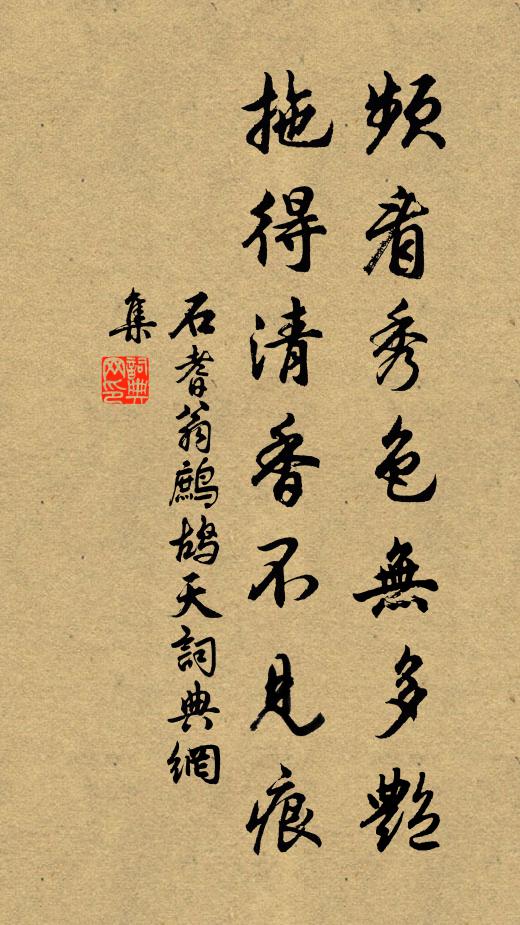 頻看秀色無多艷
拖得清香不見痕
石耆翁鷓鴣天詞典網
集
詞典
网印